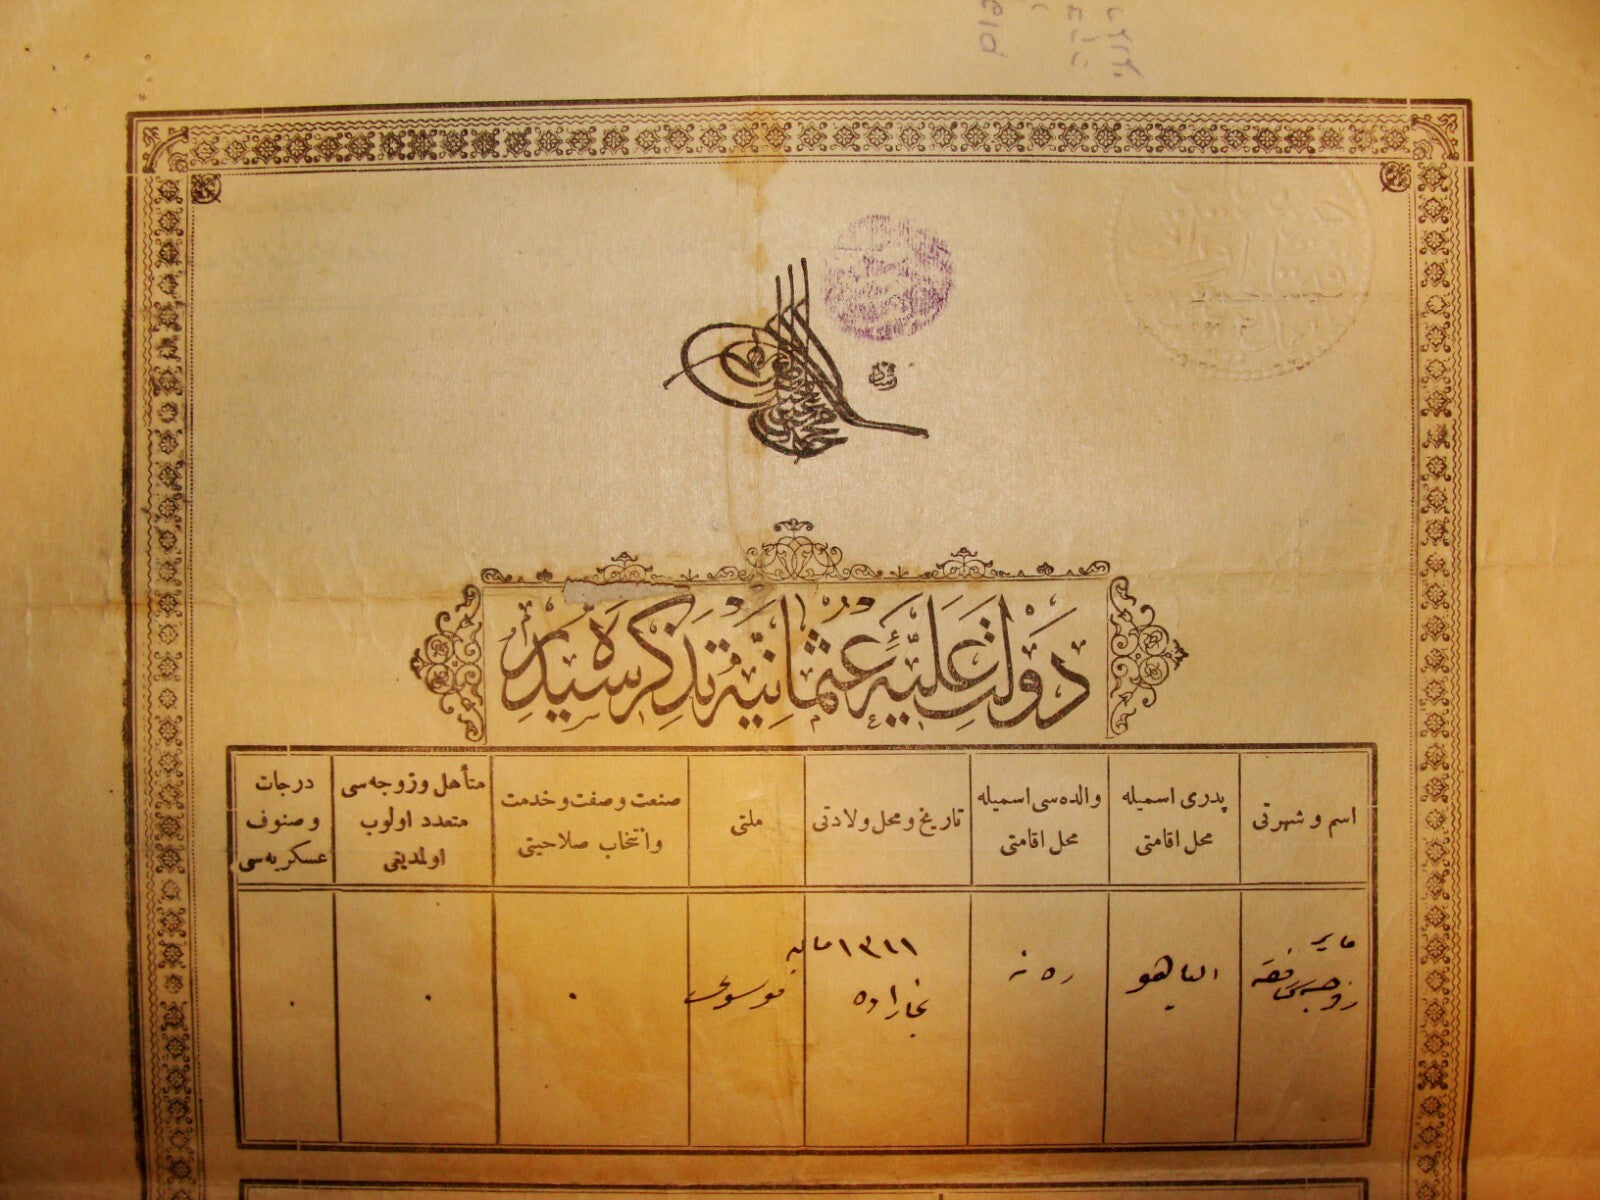 دَوْلَتِ عَلِيَّهٔ عُثْمَانِيَّه تَذْكِرَه سِيدِرْ
اسم و شهرتی
پدری اسمیله
محل اقامتی
والده‌سی اسمیله
محل اقامتی
تاریخ و محل ولادتی
ملتی
صنعت و صفت و خدمت
و انتخاب صلاحیتی
متأهل و زوجه‌سی
متعدد اولوب
اولمدیغی
درجات
و صنوف
عسکریه‌سی
زوجه‌سی
الیاهو
ره نه
۱۳۱۱
موسوی